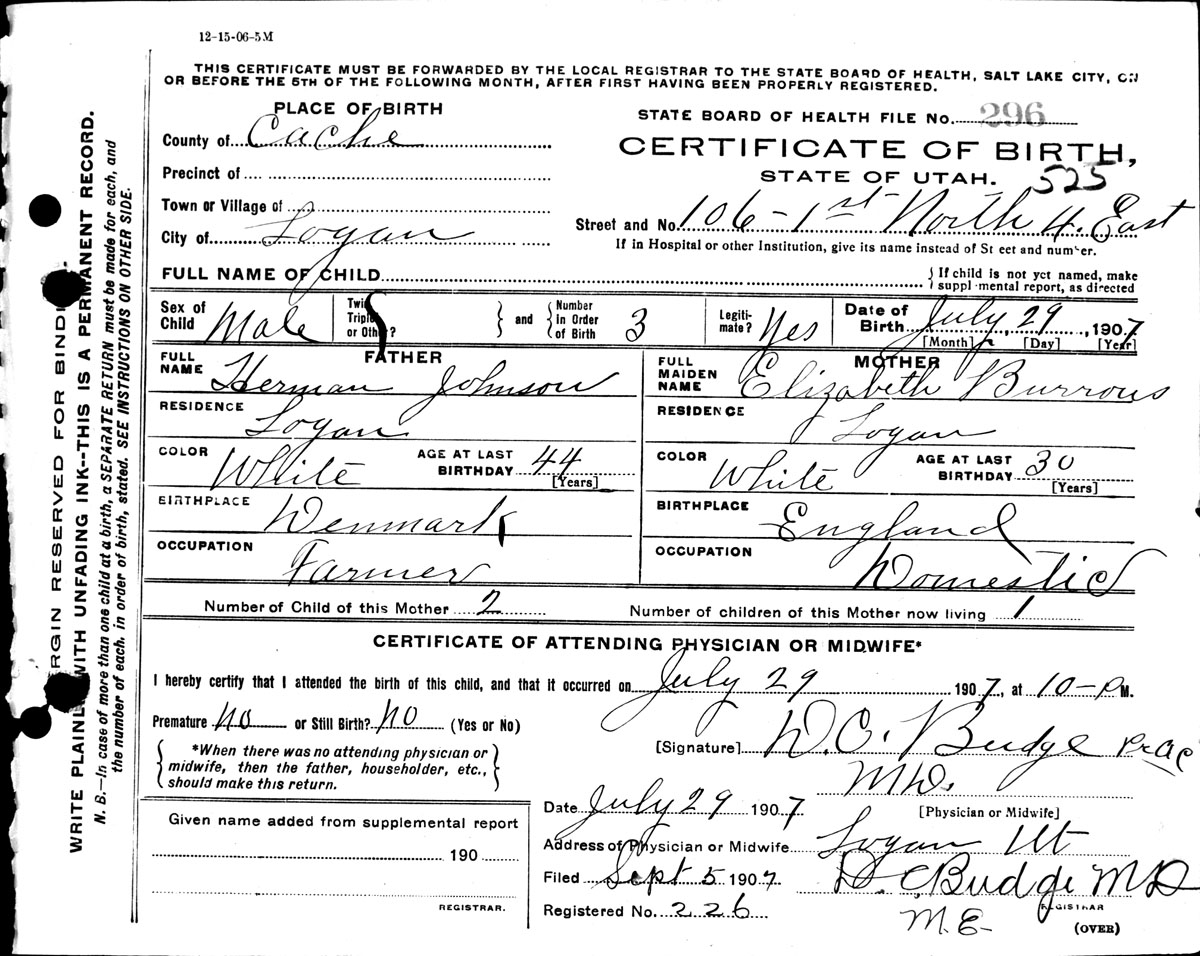 12-15-06-5M
THIS CERTIFICATE MUST BE FORWARDED BY THE LOCAL REGISTRAR TO THE STATE BOARD OF HEALTH, SALT LAKE CITY, ON
OR BEFORE THE 5TH OF THE FOLLOWING MONTH, AFTER FIRST HAVING BEEN PROPERLY REGISTERED.
PLACE OF BIRTH
County of Cache
Precinct of
Town or Village of
City of Logan
STATE BOARD OF HEALTH FILE No. 296
CERTIFICATE OF BIRTH,
STATE OF UTAH. 525
Street and No. 106-1st North 4. East
If in Hospital or other Institution, give its name instead of St eet and number.
FULL NAME OF CHILD
{ If child is not yet named, make
suppl mental report, as directed
Sex of Child Male
Twin Triplet or Other? } and { Number in Order of Birth 3
Legiti-mate? Yes
Date of Birth July 29, 1907
[Month] [Day] [Year]
FATHER
FULL NAME Herman Johnson
RESIDENCE Logan
COLOR White AGE AT LAST BIRTHDAY 44 [Years]
BIRTHPLACE Denmark
OCCUPATION Farmer
MOTHER
FULL MAIDEN NAME Elizabeth Burrous
RESIDENCE Logan
COLOR White AGE AT LAST BIRTHDAY 30 [Years]
BIRTHPLACE England
OCCUPATION Domestic
Number of Child of this Mother 2 Number of children of this Mother now living 1
CERTIFICATE OF ATTENDING PHYSICIAN OR MIDWIFE*
I hereby certify that I attended the birth of this child, and that it occurred on July 29 1907, at 10-P M.
Premature No or Still Birth? No (Yes or No)
{ *When there was no attending physician or
midwife, then the father, householder, etc.,
should make this return. }
[Signature] D.C. Budge
M.D.
[Physician or Midwife]
Date July 29 1907
Address of Physician or Midwife Logan Ut
Filed Sept 5 1907 D.C. Budge MD
REGISTRAR
Registered No. 226 M.E.
(OVER)
Given name added from supplemental report
190
REGISTRAR.
MARGIN RESERVED FOR BINDING.
WRITE PLAINLY WITH UNFADING INK--THIS IS A PERMANENT RECORD.
N. B.—In case of more than one child at a birth, a SEPARATE RETURN must be made for each, and
the number of each. in order of birth, stated. SEE INSTRUCTIONS ON OTHER SIDE.